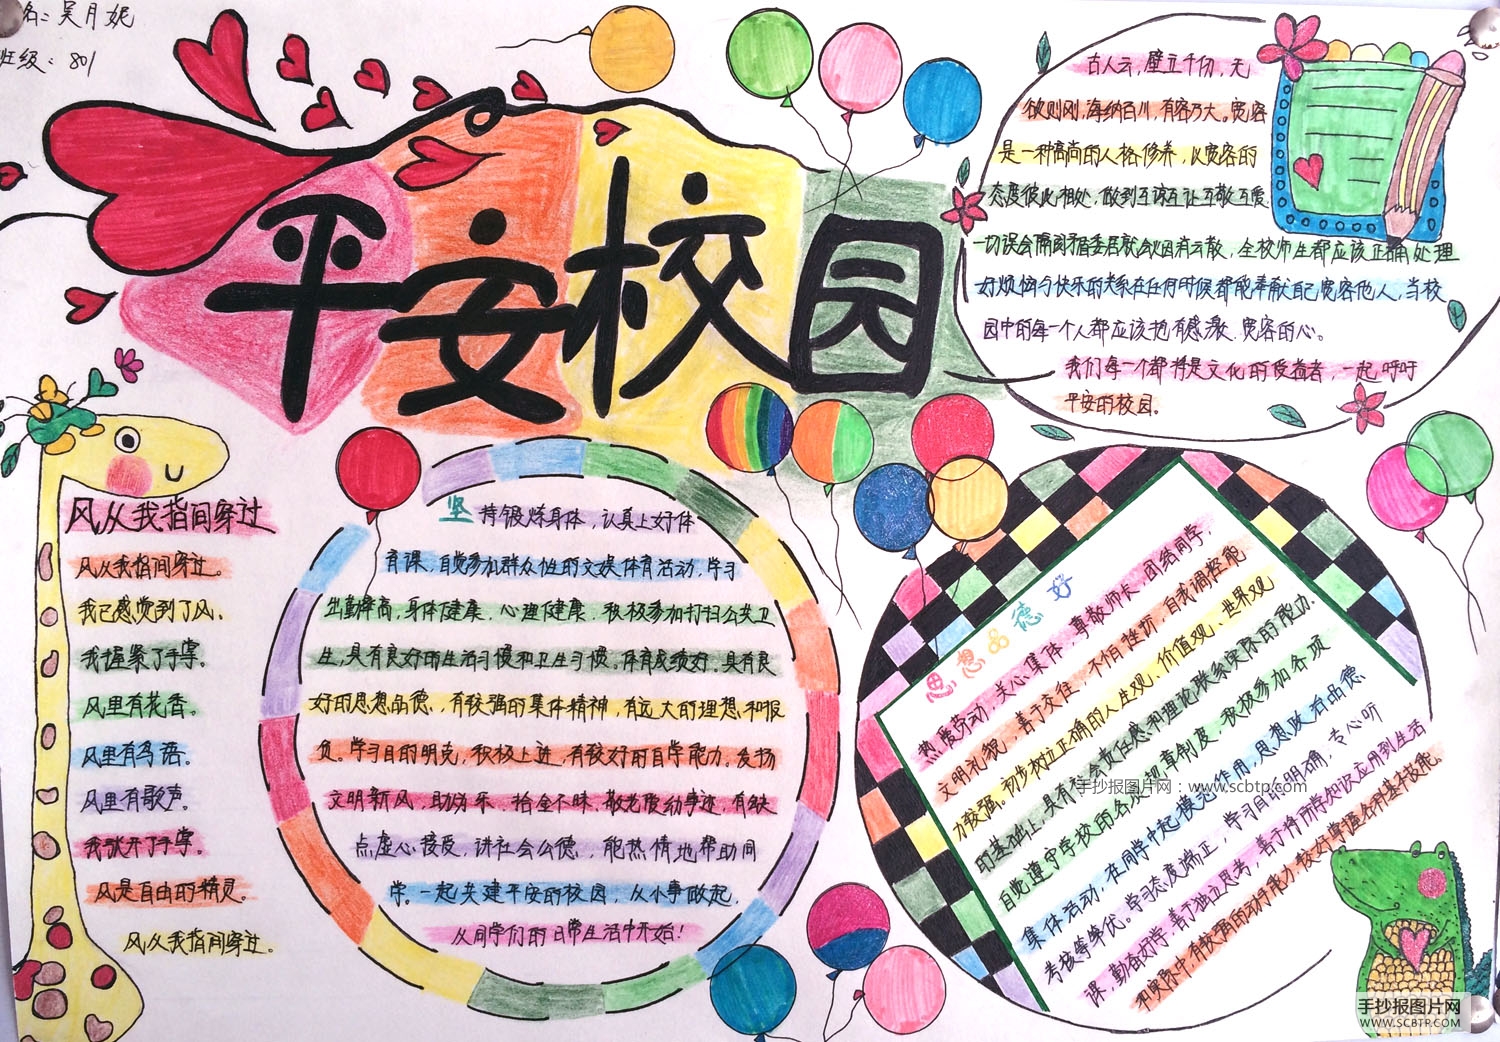 名：吴月妮
班级：801
平安校园
古人云，壁立千仞，无
欲则刚，海纳百川，有容乃大。宽容
是一种高尚的人格修养，以宽容的
态度彼此相处，做到互谅互让互敬互爱
一切误会隔阂矛盾委屈就会烟消云散，全校师生都应该正确处理
好烦恼与快乐的关系在任何时候都能奉献自己宽容他人，当校
园中的每一个人都应该抱有感激、宽容的心。
我们每一个都将是文化的受益者，一起呼吁
平安的校园。
风从我指间穿过
风从我指间穿过。
我已感觉到了风、
我握紧了手掌。
风里有花香。
风里有鸟语。
风里有歌声。
我张开了手掌。
风是自由的精灵。
风从我指间穿过。
坚持锻炼身体，认真上好体
育课，自觉参加群众性的文娱体育活动，学习
出勤率高，身体健康，心理健康，积极参加打扫公共卫
生，具有良好的生活习惯和卫生习惯。体育成绩好。具有良
好的思想品德，有较强的集体精神，有远大的理想和报
负。学习目的明克，积极上进，有较好的自学能力，发扬
文明新风，助人乐，拾金不昧，敬老爱幼事迹，有缺
点虚心接受，讲社会公德，能热情地帮助同
学。一起共建平安的校园，从小事做起，
从同学们的日常生活中开始！
思想品德好
热爱劳动，关心集体，尊敬师长，团结同学，
文明礼貌，善于交往，不怕挫折，自我调控能
力较强。初步树立正确的人生观、价值观、世界观
的基础上，具有社会责任感和理论联系实际的能力.
自觉遵守学校的各项规章制度，积极参加各项
集体活动，在同学中起模范作用，思想政治品德
考核等第优。学习态度端正，学习目的明确，专心听
课，勤奋好学，善于独立思考，善于将所学知识应用到生活
和实际中，有较强的动手能力，较好掌握各科基本技能。
手抄报图片网：www.scbtp.com
手抄报图片网
WWW.SCBTP.COM